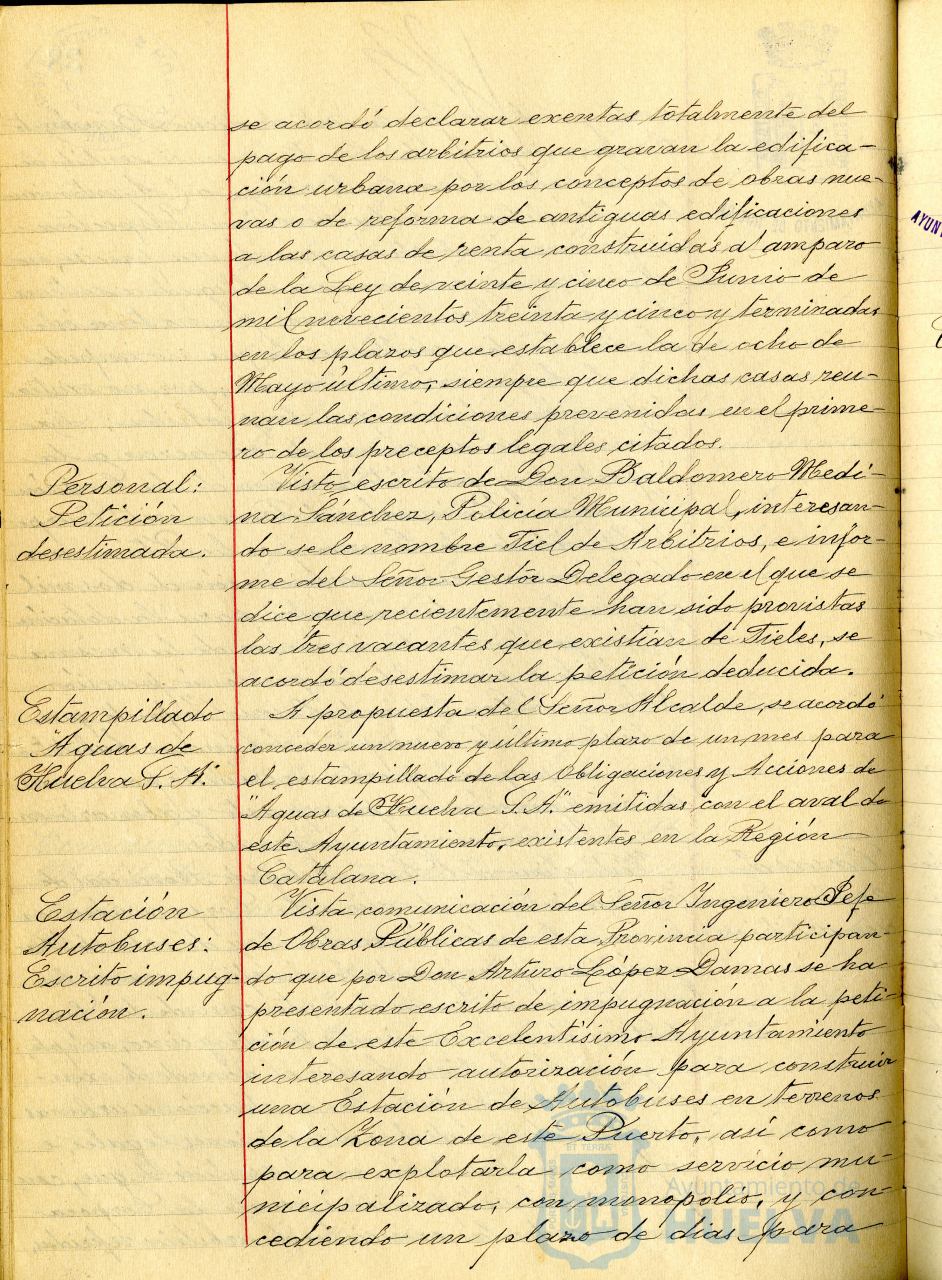 se acordó declarar exentas totalmente del
pago de los arbitrios que gravan la edifica-
ción urbana por los conceptos de obras nue-
vas o de reforma de antiguas edificaciones
a las casas de renta construidas al amparo
de la Ley de veinte y cinco de Junio de
mil novecientos treinta y cinco y terminadas
en los plazos que establece la de ocho de
Mayo último, siempre que dichas casas reu-
nan las condiciones prevenidas en el prime-
ro de los preceptos legales citados.
Personal:
Petición
desestimada.
Visto escrito de Don Baldomero Medi-
na Sánchez, Policía Municipal, interesan-
do se le nombre Fiel de Arbitrios, e infor-
me del Señor Gestor Delegado en el que se
dice que recientemente han sido provistas
las tres vacantes que existían de Fieles, se
acordó desestimar la petición deducida.
Estampillado
"Aguas de
Huelva S. A."
A propuesta del Señor Alcalde, se acordó
conceder un nuevo y último plazo de un mes para
el estampillado de las Obligaciones y Acciones de
"Aguas de Huelva S.A." emitidas con el aval de
este Ayuntamiento, existentes en la Región
Catalana.
Estación
Autobuses:
Escrito impug-
nación.
Vista comunicación del Señor Ingeniero Jefe
de Obras Públicas de esta Provincia participan-
do que por Don Arturo López Damas se ha
presentado escrito de impugnación a la peti-
ción de este Excelentísimo Ayuntamiento
interesando autorización para construir
una Estación de Autobuses en terrenos
de la Zona de este Puerto, así como
para explotarla como servicio mu-
nicipalizado, con monopolio, y con-
cediendo un plazo de días para
Ayuntamiento de
HUELVA